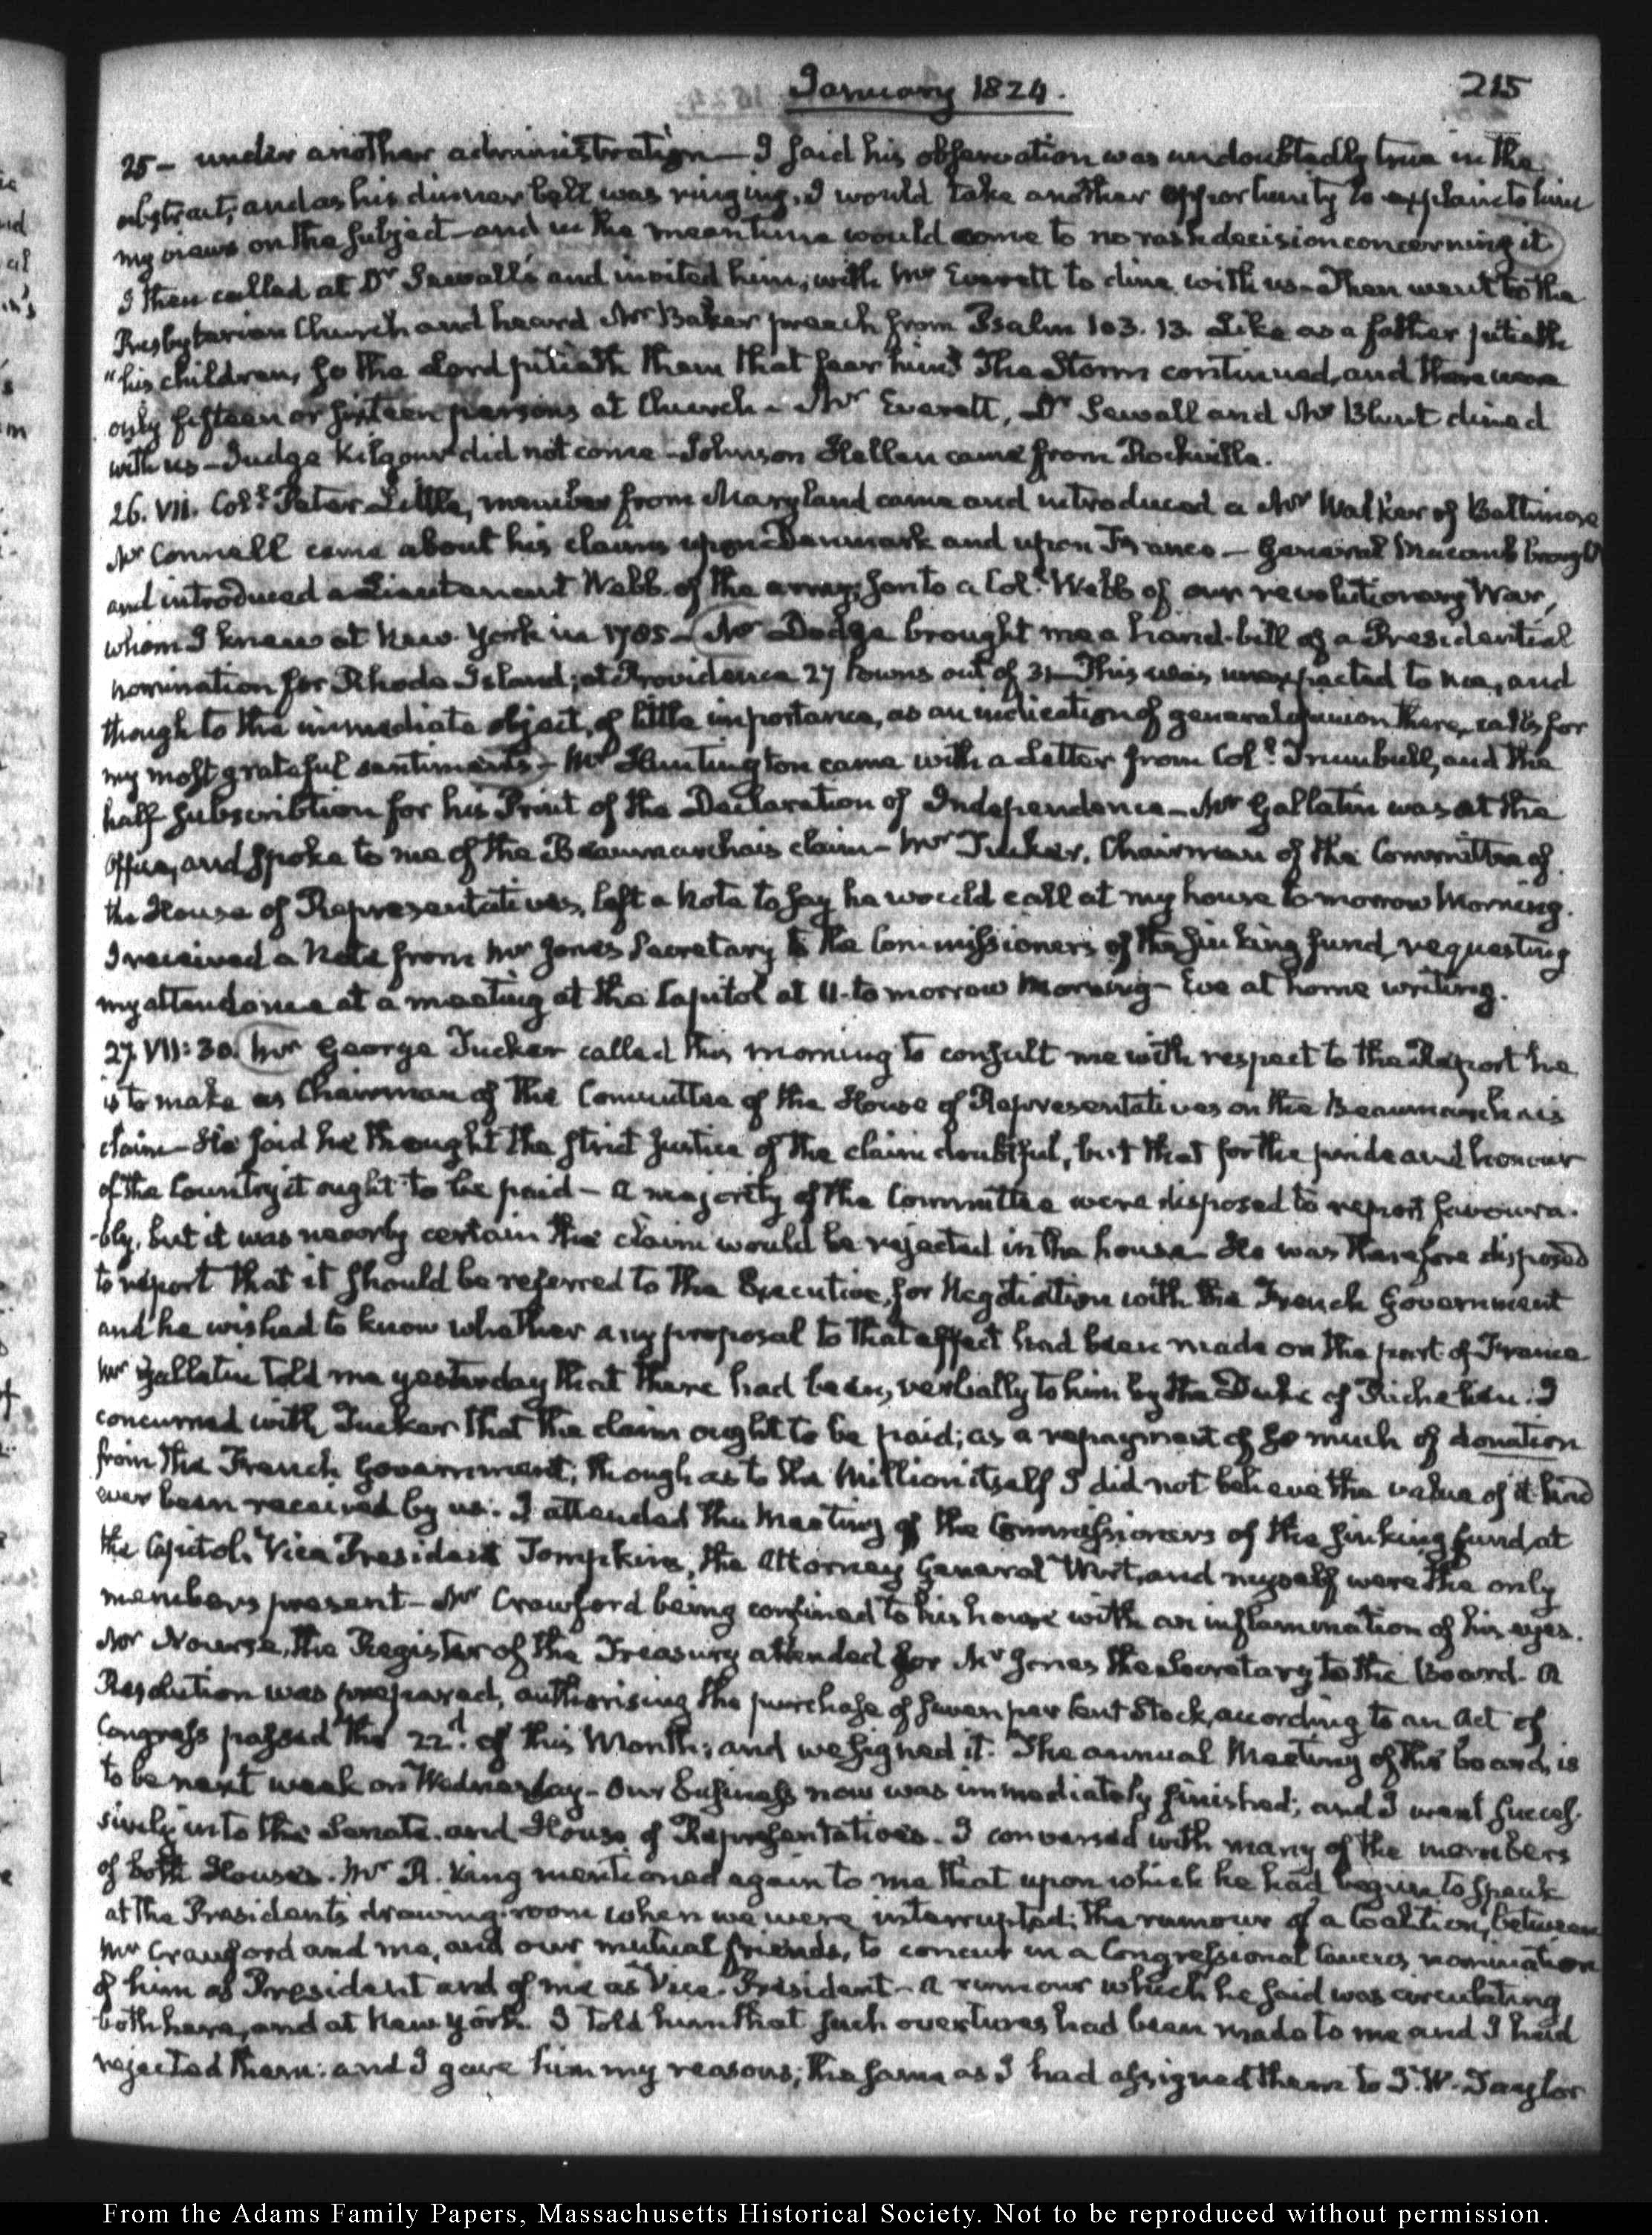 January 1824.
215
25 - under another administration - I said his observation was undoubtedly true in the
abstract, and as his dinner bell was ringing, I would take another opportunity to explain to him
my views on the subject - and in the meantime would come to no rash decision concerning it
I then called at Dr Sewall's and invited him, with Mr Everett to dine with us - Then went to the
Presbyterian Church and heard Mr Baker preach from Psalm 103. 13. Like as a father pitieth
"his children, so the Lord pitieth them that fear him" The Storm continued, and there were
only fifteen or sixteen persons at Church - Mr Everett, Dr Sewall and Mr Blunt dined
with us - Judge Kilgour did not come - Johnson Hellen came from Rockville.
26. VII. Coll. Peter Little, member from Maryland came and introduced a Mr Walker of Baltimore
Mr Connell came about his claims upon Denmark and upon France - General Macomb brought
and introduced a Lieutenant Webb of the army, son to a Coll. Webb of our revolutionary War,
whom I knew at New-York in 1785 - Mr Dodge brought me a hand-bill of a Presidential
nomination for Rhode Island; at Providence 27 towns out of 31 - This was unexpected to me, and
though to the immediate object, of little importance, as an indication of general opinion there, calls for
my most grateful sentiments - Mr Huntington came with a Letter from Coll. Trumbull, and the
half subscribtion for his Print of the Declaration of Independence - Mr Gallatin was at the
Office, and spoke to me of the Beaumarchais claim - Mr Tucker, Chairman of the Committee of
the House of Representatives, left a Note to say he would call at my house to-morrow Morning.
I received a Note from Mr Jones Secretary to the Commissioners of the sinking fund, requesting
my attendance at a meeting at the Capitol at 11. to morrow Morning - Eve at home writing.
27. VII:30. Mr George Tucker called this morning to consult me with respect to the Report he
is to make as Chairman of the Committee of the House of Representatives on the Beaumarchais
claim - He said he thought the strict justice of the claim doubtful, but that for the pride and honour
of the Country it ought to be paid - A majority of the Committee were disposed to report favoura-
-bly, but it was nearly certain the claim would be rejected in the house - He was therefore disposed
to report that it should be referred to the Executive, for Negotiation with the French Government
and he wished to know whether any proposal to that effect had been made on the part of France
Mr Gallatin told me yesterday that there had been, verbally to him by the Duke of Richelieu. I
concurred with Tucker that the claim ought to be paid; as a repayment of so much of donation
from the French Government; though as to the Million itself I did not believe the value of it had
ever been received by us. I attended the Meeting of the Commissioners of the sinking fund, at
the Capitol. Vice President Tompkins, the Attorney General Wirt, and myself were the only
members present - Mr Crawford being confined to his house with an inflammation of his eyes.
Mr Nourse, the Register of the Treasury attended for Mr Jones the Secretary to the board. A
Resolution was prepared, authorising the purchase of seven per Cent Stock, according to an Act of
Congress passed the 22d. of this Month; and we signed it. The annual Meeting of this board, is
to be next week on Wednesday - Our business now was immediately finished; and I went succes-
sively into the Senate and House of Representatives. I conversed with many of the members
of both Houses. Mr R. King mentioned again to me that upon which he had begun to speak
at the President's drawing-room when we were interrupted; the rumour of a Coalition, between
Mr Crawford and me, and our mutual friends, to concur in a Congressional Caucus nomination
of him as President and of me as Vice-President - A rumour which he said was circulating
both here, and at New York. I told him that such overtures had been made to me and I had
rejected them: and I gave him my reasons; the same as I had assigned them to J. W. Taylor
From the Adams Family Papers, Massachusetts Historical Society. Not to be reproduced without permission.